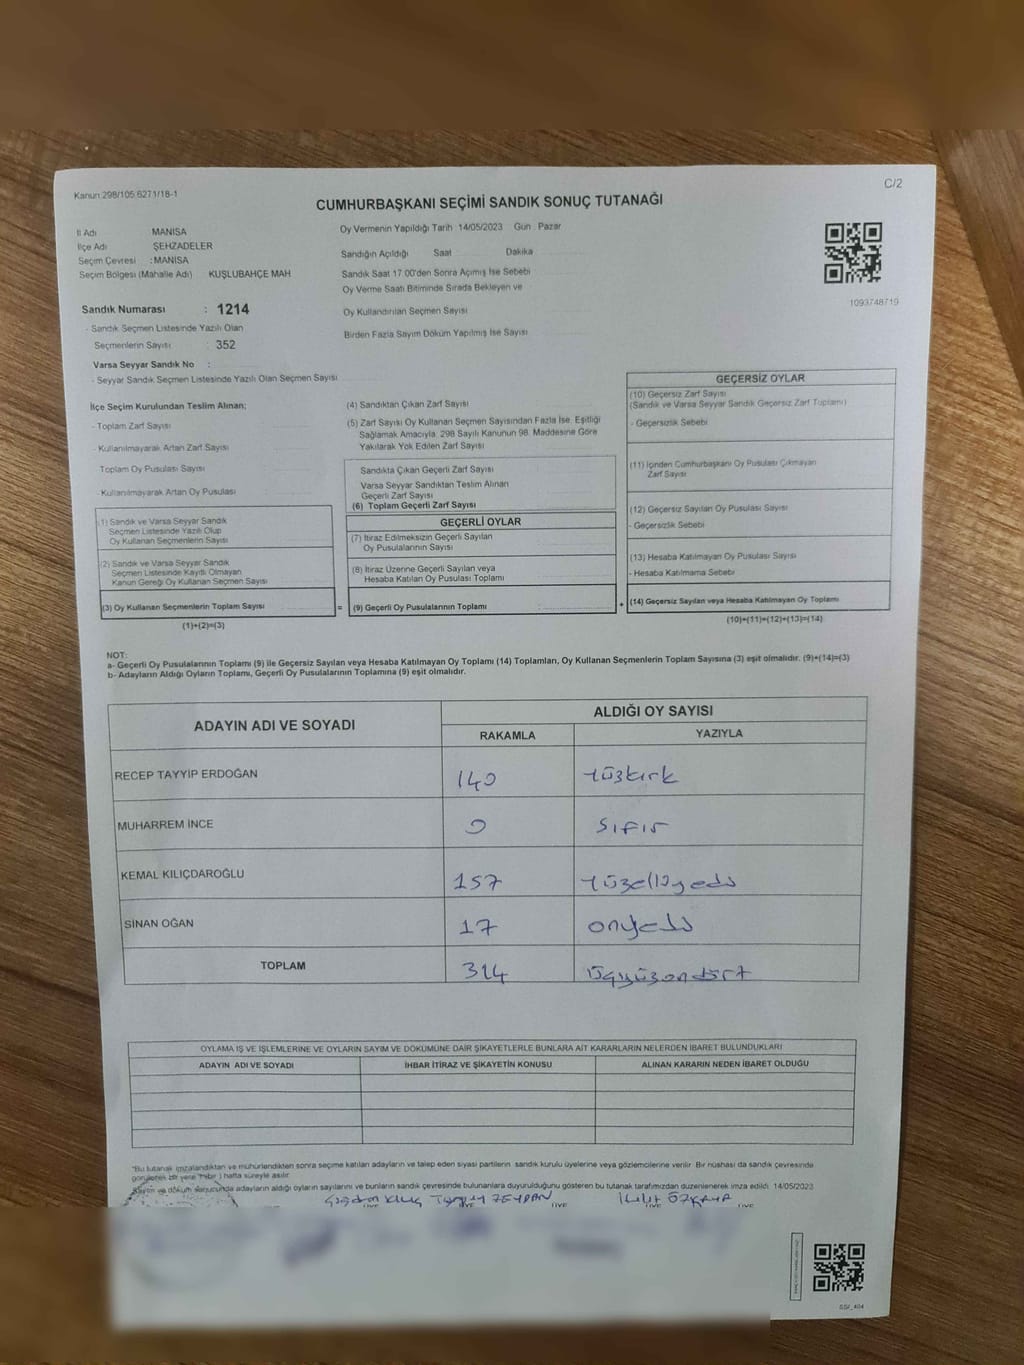 Kanun 298/105 6271/18-1
C/2
CUMHURBAŞKANI SEÇİMİ SANDIK SONUÇ TUTANAĞI
İl Adı MANİSA
İlçe Adı ŞEHZADELER
Seçim Çevresi : MANİSA
Seçim Bölgesi (Mahalle Adı) KUŞLUBAHÇE MAH
Sandık Numarası : 1214
- Sandık Seçmen Listesinde Yazılı Olan
Seçmenlerin Sayısı 352
Varsa Seyyar Sandık No :
- Seyyar Sandık Seçmen Listesinde Yazılı Olan Seçmen Sayısı
Oy Vermenin Yapıldığı Tarih 14/05/2023 Gün Pazar
Sandığın Açıldığı Saat Dakika
Sandık Saat 17.00'den Sonra Açımış İse Sebebi
Oy Verme Saati Bitiminde Sırada Bekleyen ve
Oy Kullandırılan Seçmen Sayısı
Birden Fazla Sayım Döküm Yapılmış İse Sayısı
1093748719
İlçe Seçim Kurulundan Teslim Alınan;
- Toplam Zarf Sayısı
- Kullanılmayarak Artan Zarf Sayısı
Toplam Oy Pusulası Sayısı
- Kullanılmayarak Artan Oy Pusulası
(1) Sandık ve Varsa Seyyar Sandık
Seçmen Listesinde Yazılı Olup
Oy Kullanan Seçmenlerin Sayısı
(2) Sandık ve Varsa Seyyar Sandık
Seçmen Listesinde Kayıtlı Olmayan
Kanun Gereği Oy Kullanan Seçmen Sayısı
(3) Oy Kullanan Seçmenlerin Toplam Sayısı
(1)+(2)=(3)
=
(4) Sandıktan Çıkan Zarf Sayısı
(5) Zarf Sayısı Oy Kullanan Seçmen Sayısından Fazla İse, Eşitliği
Sağlamak Amacıyla 298 Sayılı Kanunun 98. Maddesine Göre
Yakılarak Yok Edilen Zarf Sayısı
Sandıkta Çıkan Geçerli Zarf Sayısı
Varsa Seyyar Sandıktan Teslim Alınan
Geçerli Zarf Sayısı
(6) Toplam Geçerli Zarf Sayısı
GEÇERLİ OYLAR
(7) İtiraz Edilmeksizin Geçerli Sayılan
Oy Pusulalarının Sayısı
(8) İtiraz Üzerine Geçerli Sayılan veya
Hesaba Katılan Oy Pusulası Toplamı
(9) Geçerli Oy Pusulalarının Toplamı
+
GEÇERSİZ OYLAR
(10) Geçersiz Zarf Sayısı
(Sandık ve Varsa Seyyar Sandık Geçersiz Zarf Toplamı)
- Geçersizlik Sebebi
(11) İçinden Cumhurbaşkanı Oy Pusulası Çıkmayan
Zarf Sayısı
(12) Geçersiz Sayılan Oy Pusulası Sayısı
- Geçersizlik Sebebi
(13) Hesaba Katılmayan Oy Pusulası Sayısı
- Hesaba Katılmama Sebebi
(14) Geçersiz Sayılan veya Hesaba Katılmayan Oy Toplamı
(10)+(11)+(12)+(13)=(14)
NOT:
a- Geçerli Oy Pusulalarının Toplamı (9) ile Geçersiz Sayılan veya Hesaba Katılmayan Oy Toplamı (14) Toplamları, Oy Kullanan Seçmenlerin Toplam Sayısına (3) eşit olmalıdır. (9)+(14)=(3)
b- Adayların Aldığı Oyların Toplamı, Geçerli Oy Pusulalarının Toplamına (9) eşit olmalıdır.
ADAYIN ADI VE SOYADI ALDIĞI OY SAYISI
RAKAMLA YAZIYLA
RECEP TAYYİP ERDOĞAN 140 yüzkırk
MUHARREM İNCE 0 sıfır
KEMAL KILIÇDAROĞLU 157 yüzelliyedi
SİNAN OĞAN 17 onyedi
TOPLAM 314 üçyüzondört
OYLAMA İŞ VE İŞLEMLERİNE VE OYLARIN SAYIM VE DÖKÜMÜNE DAİR ŞİKAYETLERLE BUNLARA AİT KARARLARIN NELERDEN İBARET BULUNDUKLARI
ADAYIN ADI VE SOYADI İHBAR İTİRAZ VE ŞİKAYETİN KONUSU ALINAN KARARIN NEDEN İBARET OLDUĞU
*Bu tutanak imzalandıktan ve mühürlendikten sonra seçime katılan adayların ve talep eden siyasi partilerin sandık kurulu üyelerine veya gözlemcilerine verilir. Bir nüshası da sandık çevresinde
görülecek bir yere 1 (bir) hafta süreyle asılır.
Sayım ve döküm sonucunda adayların aldığı oyların sayılarını ve bunların sandık çevresinde bulunanlara duyurulduğunu gösteren bu tutanak tarafımızdan düzenlenerek imza edildi. 14/05/2023
KILIÇ ZEYBAN ÖZKAYA
SSİ_404